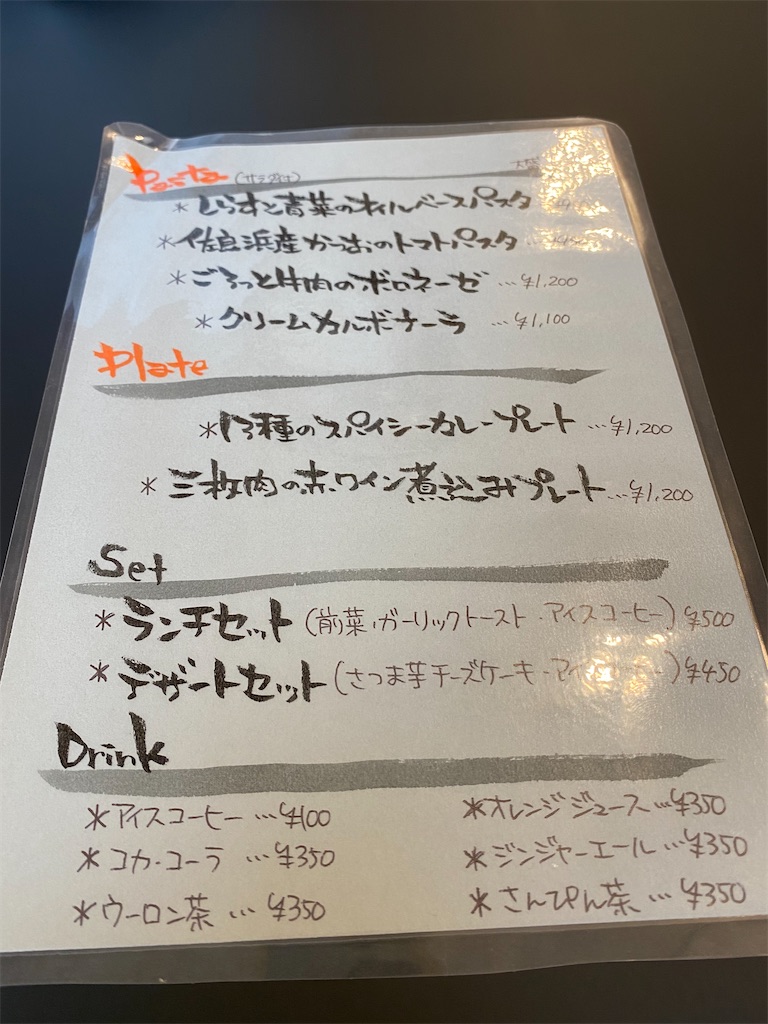 Pasta
*しらすと青菜のオイルベースパスタ
*佐良浜産かつおのトマトパスタ
*ごろっと牛肉のボロネーゼ …¥1,200
*クリームカルボナーラ …¥1,100
Plate
*13種のスパイシーカレープレート …¥1,200
*三枚肉の赤ワイン煮込みプレート …¥1,200
Set
*ランチセット(前菜・ガーリックトースト・アイスコーヒー) ¥500
*デザートセット(さつま芋チーズケーキ・アイスコーヒー) ¥450
Drink
*アイスコーヒー …¥100 *オレンジジュース …¥350
*コカ・コーラ …¥350 *ジンジャーエール …¥350
*ウーロン茶 …¥350 *さんぴん茶 …¥350